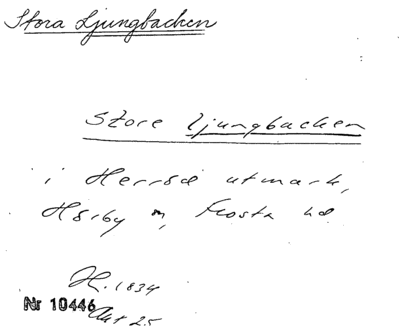 Stora Ljungbacken
Store Ljungbacken
i Herrsä utmark,
Hörby sn, Frosta hd
H. 1834
Nr 10446
Akt 25